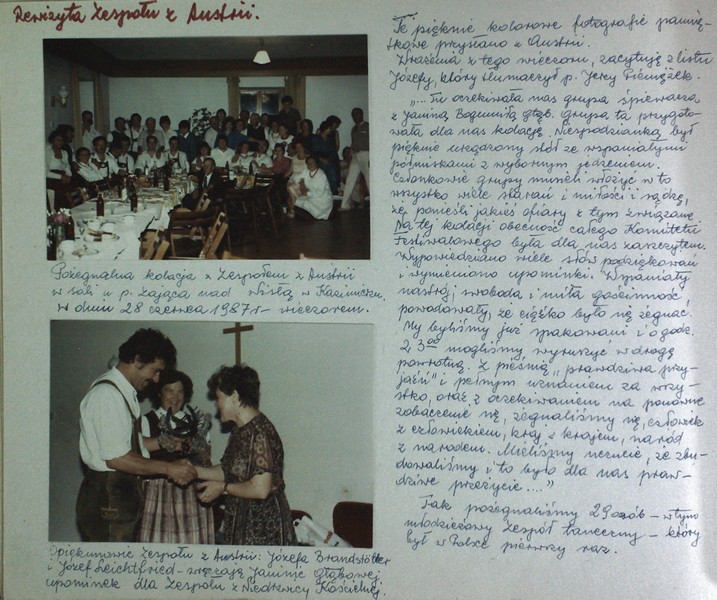 Rewizyta Zespołu z Austrii.
Pożegnalna kolacja z Zespołem z Austrii
w sali u p. Zająca nad Wisłą w Kazimierzu.
w dniu 28 czerwca 1987 r - wieczorem.
Opiekunowie Zespołu z Austrii: Józefa Brandstötter
i Józef Leichtfried - wręczają Janinie Głąbowej
upominek dla Zespołu z Niedrzwicy Kościelnej.
Te pięknie kolorowe fotografie pamią-
tkowe przysłano z Austrii.
Wrażenia z tego wieczoru, zacytuję z listu
Józefy, który tłumaczył p. Jerzy Pieniążek.
"... Tu oczekiwała nas grupa śpiewacza
z Janiną Bogumiłą Głąb. Grupa ta przygoto-
wała dla nas kolację. Niespodzianką był
pięknie urządzony stół ze wspaniałymi
półmiskami z wybornym jedzeniem.
Członkowie grupy musieli włożyć w to
wszystko wiele starań i miłości i sądzę,
że ponieśli jakieś ofiary z tym związane.
Na tej kolacji obecność całego Komitetu
Festiwalowego była dla nas zaszczytem.
Wypowiedziano wiele słów podziękowań
i wymieniono upominki. Wspaniały
nastrój, swoboda i miła gościnność,
powodowały, że ciężko było się żegnać.
My byliśmy już spakowani i o godz.
23⁰⁰ mogliśmy wyruszyć w drogę
powrotną. Z pieśnią "prawdziwa przy-
jaźń" i pełnym uznaniem za wszy-
stko, oraz z oczekiwaniem na ponowne
zobaczenie się, żegnaliśmy się, człowiek
z człowiekiem, kraj z krajem, naród
z narodem. Mieliśmy uczucie, że zbu-
dowaliśmy i to było dla nas praw-
dziwe przeżycie...."
Tak pożegnaliśmy 29 osób - w tym
młodzieżowy zespół taneczny - który
był w Polsce pierwszy raz.